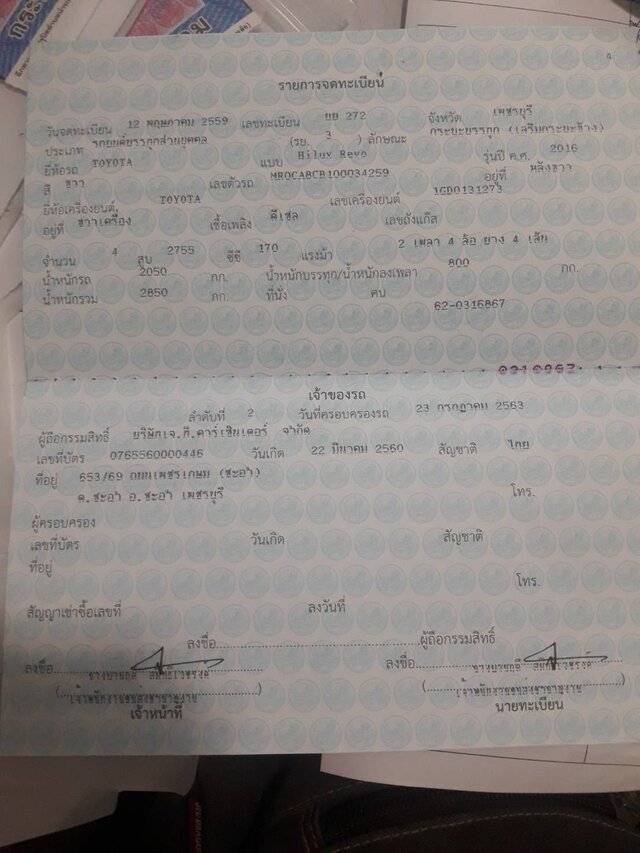 รายการจดทะเบียน
วันจดทะเบียน 12 พฤษภาคม 2559 เลขทะเบียน ยย 272 จังหวัด เพชรบุรี
ประเภท รถยนต์บรรทุกส่วนบุคคล (รย. 3 ) ลักษณะ กระบะบรรทุก (เสริมกระบะข้าง)
ยี่ห้อรถ TOYOTA แบบ Hilux Revo รุ่นปี ค.ศ. 2016
สี ขาว เลขตัวรถ MR0CABCB100034259 อยู่ที่ หลังขวา
ยี่ห้อเครื่องยนต์ TOYOTA เลขเครื่องยนต์ 1GD0131273
อยู่ที่ ขวาเครื่อง เชื้อเพลิง ดีเซล เลขถังแก๊ส
จำนวน 4 สูบ 2755 ซีซี 170 แรงม้า 2 เพลา 4 ล้อ ยาง 4 เส้น
น้ำหนักรถ 2050 กก. น้ำหนักบรรทุก/น้ำหนักลงเพลา 800 กก.
น้ำหนักรวม 2850 กก. ที่นั่ง คน
62-0316867
0316867
เจ้าของรถ
ลำดับที่ 2 วันที่ครอบครองรถ 23 กรกฎาคม 2563
ผู้ถือกรรมสิทธิ์ บริษัทเจ.ที.คาร์เซ็นเตอร์ จำกัด
เลขที่บัตร 0765560000446 วันเกิด 22 มีนาคม 2560 สัญชาติ ไทย
ที่อยู่ 653/69 ถนนเพชรเกษม (ชะอำ)
ต.ชะอำ อ.ชะอำ เพชรบุรี โทร.
ผู้ครอบครอง
เลขที่บัตร วันเกิด สัญชาติ
ที่อยู่
โทร.
สัญญาเช่าซื้อเลขที่ ลงวันที่
ลงชื่อ ผู้ถือกรรมสิทธิ์
ลงชื่อ ลงชื่อ
เจ้าหน้าที่ นายทะเบียน